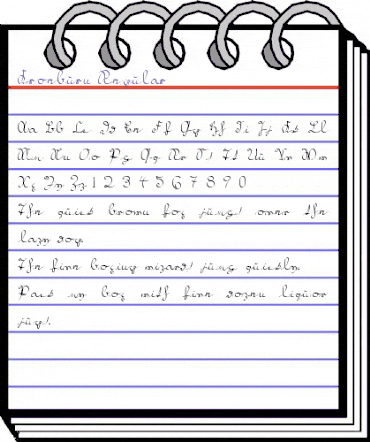 Kronburu Angular
Aa Bb Cc Dd Ee Ff Gg Hh Ii Jj Kk Ll
Mm Nn Oo Pp Qq Rr Ss Tt Uu Vv Ww
Xx Yy Zz 1 2 3 4 5 6 7 8 9 0
The quick brown fox jumps over the
lazy dog
The five boxing wizards jump quickly
Pack my box with five dozen liquor
jugs.